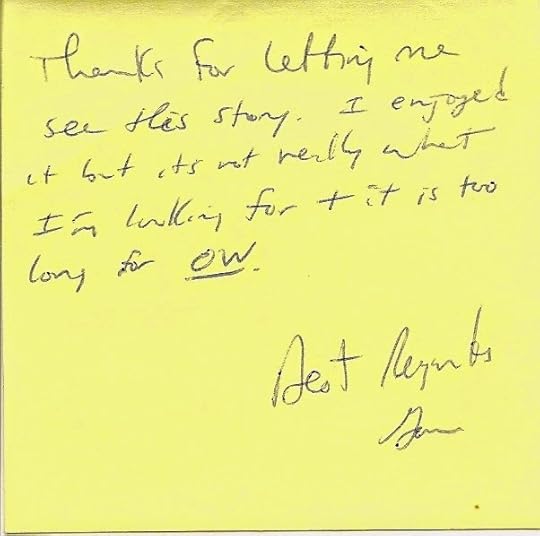 Thanks for letting me
see this story. I enjoyed
it but its not really what
I'm looking for + it is too
long for OW.
Best Regards